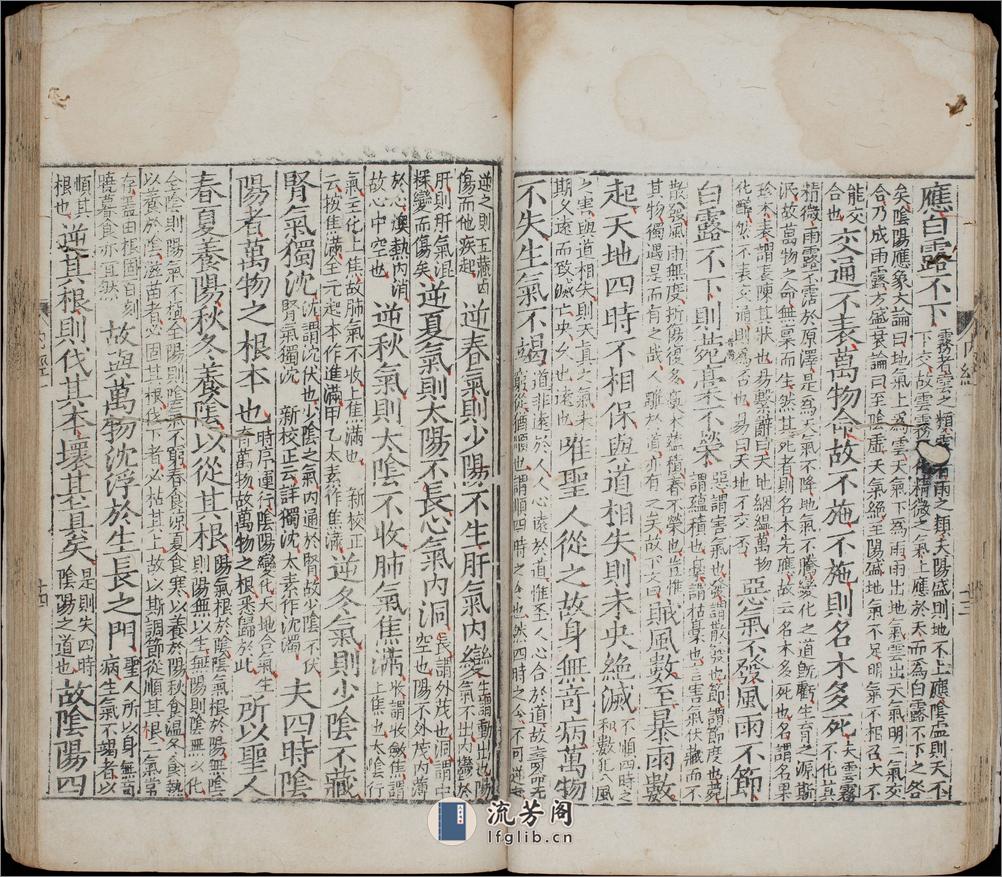 應白露不下
霧者雲之類露者雨之類夫陽盛則地不上應陰虛則天不
下交故雲霧不化精微之氣上應於天而為白露不下之咎
矣陰陽應象大論曰地氣上為雲天氣下為雨雨出地氣雲出天氣明二氣交
合乃成雨露方盛衰論曰至陰虛天氣絕至陽盛地氣不足明氣不相召夫不
能交
合也
交通不表萬物命故不施不施則名木多死
夫雲霧
不化其
精微雨露不霑於原澤是為天氣不降地氣不騰變化之道既虧生育之源斯
泯故萬物之命無稟而生然其死者則名木先應故云名木多死也名謂名果
珍木表謂表陳其狀也易繫辭曰天地絪縕萬物
化醇然不表交通則為否也易曰天地不交否
惡氣不發風雨不節
白露不下則菀槀不榮
惡謂害氣也發謂散發也節謂節度也菀
謂蘊積也槀謂枯槀也言害氣伏藏而不
散發風雨無度折傷復多槀木蘊積春不榮也豈惟
其物獨遇是而有之哉人離於道亦有之矣故下文曰
賊風數至暴雨數
起天地四時不相保與道相失則未央絕滅
不順四時之
和數犯八風
之害與道相失則天真之氣未
期久遠而致滅亡央久也遠也
唯聖人從之故身無奇病萬物
不失生氣不竭
道非遠於人人心遠於道惟聖人心合於道故壽命無
窮從猶順也謂順四時之令也然四時之令不可逆
內經
逆之則五藏內
傷而他疾起
逆春氣則少陽不生肝氣內變
生謂動出也陽
氣不出內鬱於
肝則肝氣混
糅變而傷矣
逆夏氣則太陽不長心氣內洞
長謂外茂也洞謂中
空也陽不外茂內薄
於心燠熱內消
故心中空也
逆秋氣則太陰不收肺氣焦滿
收謂收斂焦謂
上焦也太陰行
氣主化上焦故肺氣不收上焦滿也 新校正
云按焦滿全元起本作進滿甲乙太素作焦滿
逆冬氣則少陰不藏
腎氣獨沈
沈謂沈伏也少陰之氣內通於腎故少陰不伏
腎氣獨沈 新校正云詳獨沈太素作沈濁
夫四時陰
陽者萬物之根本也
時序運行陰陽變化天地合氣生
育萬物故萬物之根悉歸於此
所以聖人
春夏養陽秋冬養陰以從其根
陽氣根於陰陰氣根於陽無陰
則陽無以生無陽則陰無以化
全陰則陽氣不極全陽則陰氣不窮春食涼夏食寒以養於陽秋食溫冬食熱
以養於陰滋苗者必固其根伐下者必枯其上故以斯調節從順其根二氣常
存蓋由根固百刻
曉暮食亦宜然
故與萬物沈浮於生長之門
聖人所以身無奇
病生氣不竭者以
順其
根也
逆其根則伐其本壞其真矣
是則失四時
陰陽之道也
故陰陽四
內經
十四
流芳阁
lfglib.cn